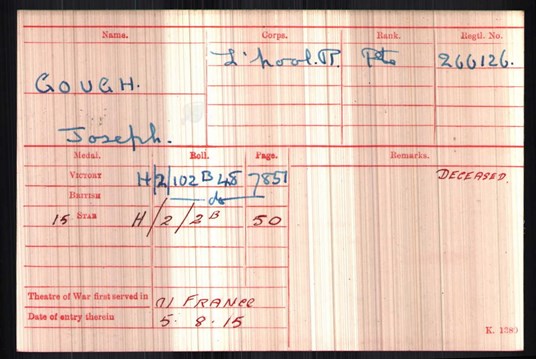 Name. Corps. Rank. Regtl. No.
GOUGH. L'pool. R. Pte 266126.
Joseph.
Medal. Roll. Page. Remarks.
VICTORY H/2/102 B 48 7851 DECEASED
BRITISH do
15 STAR H/2/2B 50
Theatre of War first served in (1) FRANCE
Date of entry therein 5. 8. 15
K. 1380